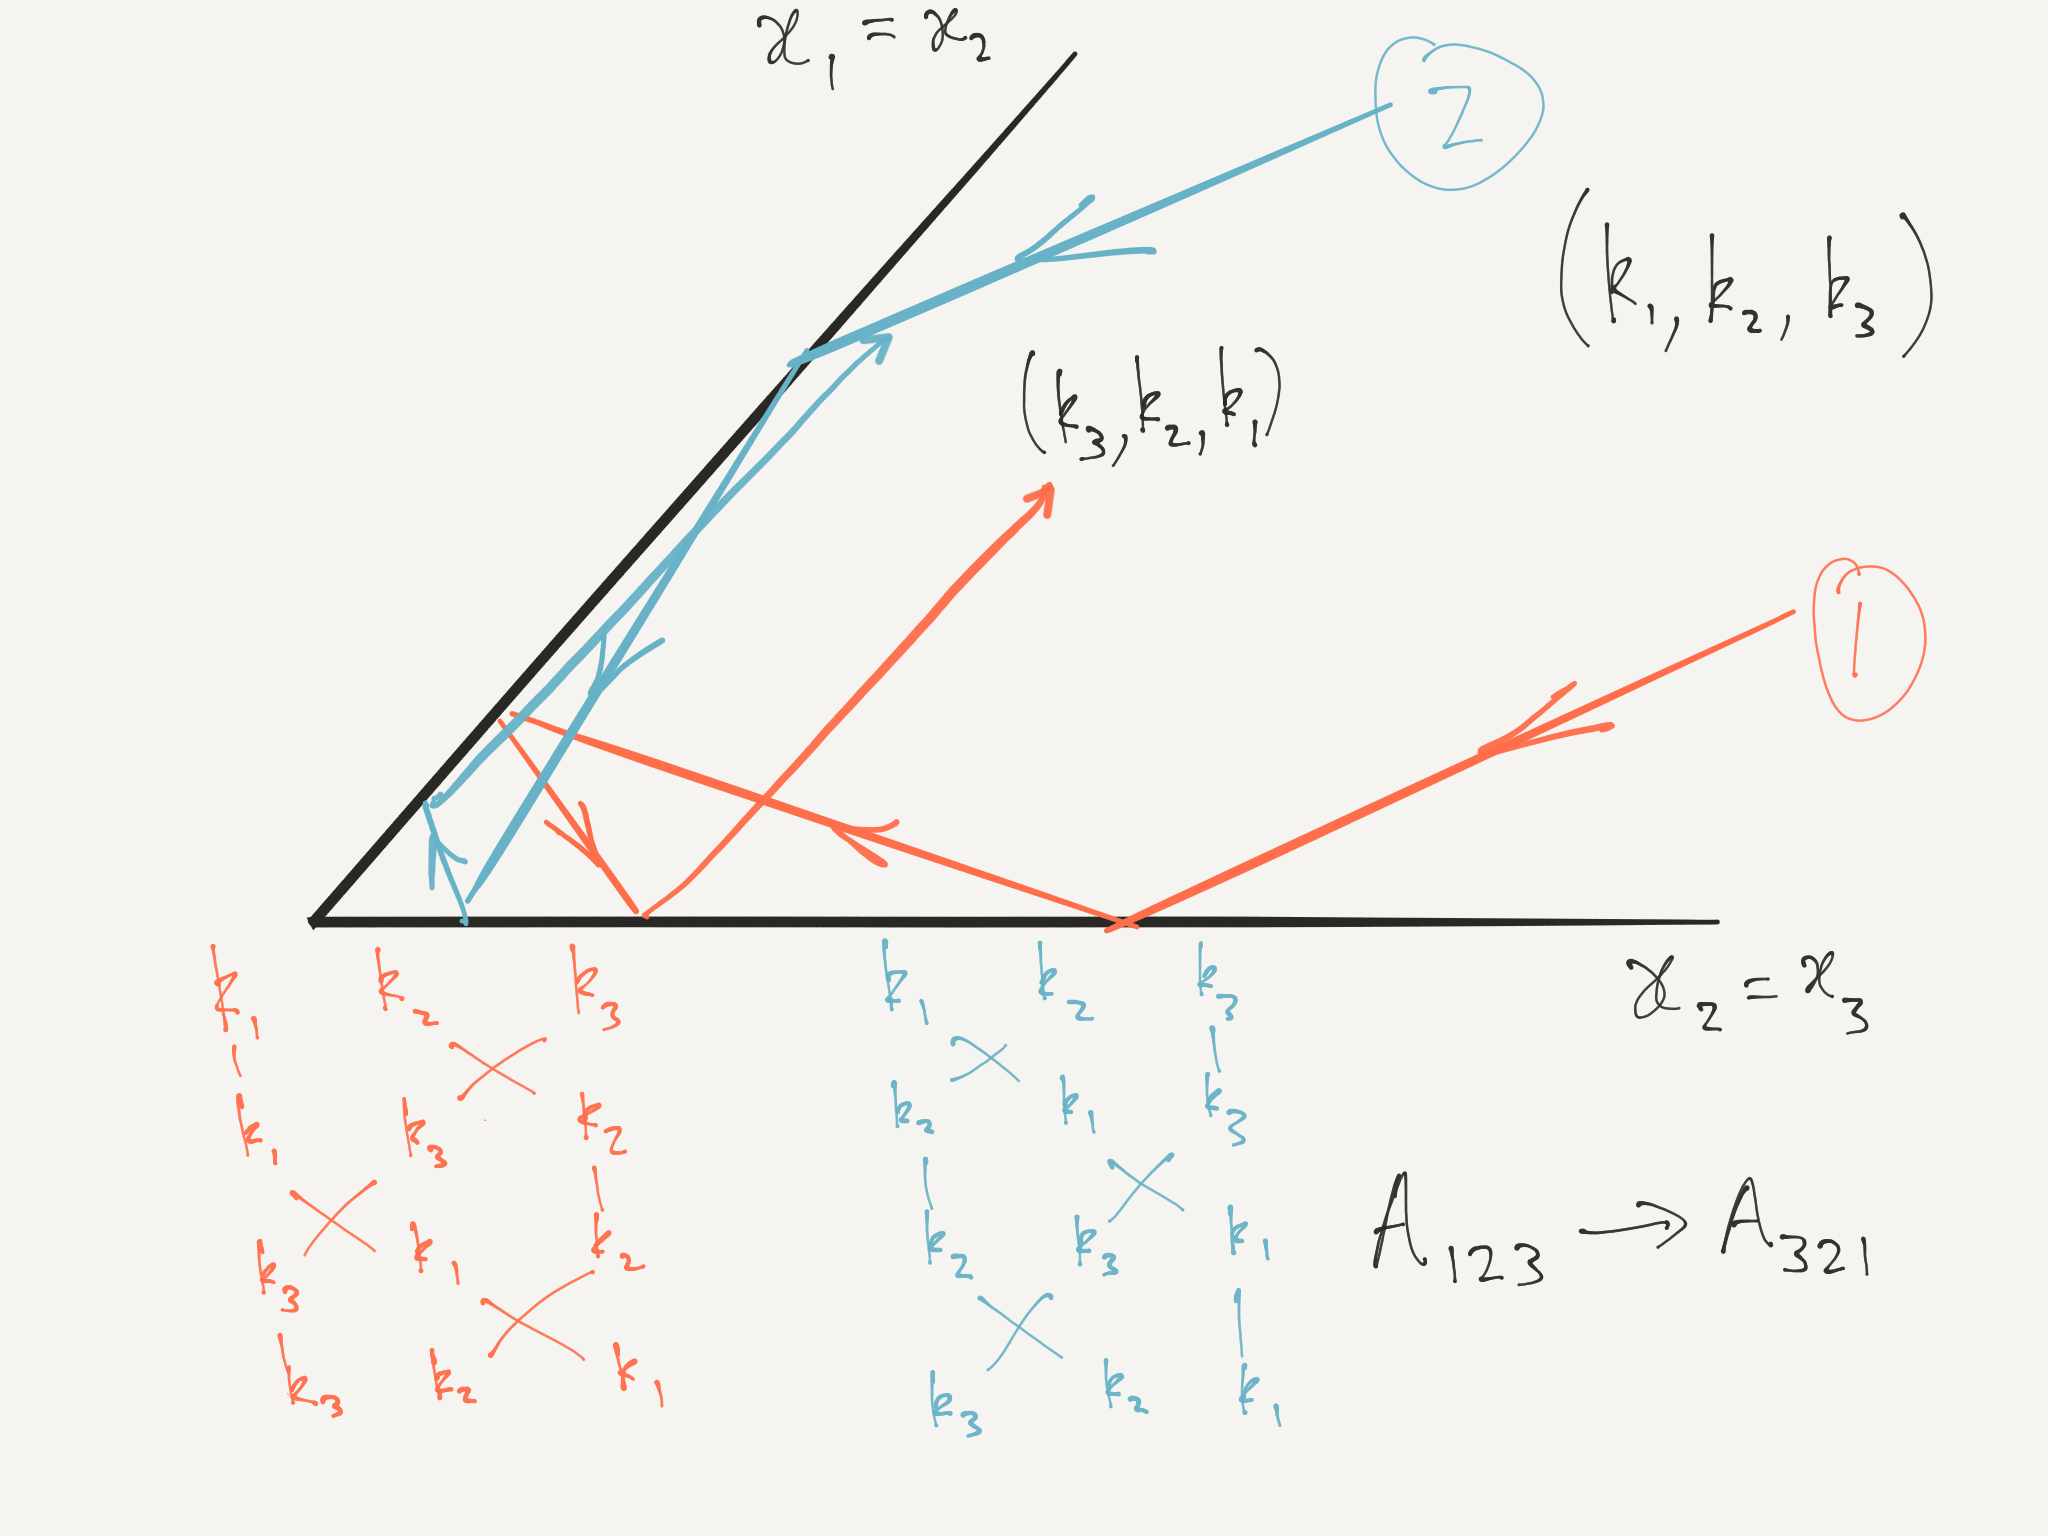 x₁ = x₂
2
(k₁, k₂, k₃)
(k₃, k₂, k₁)
1
x₂ = x₃
k₁ k₂ k₃
k₁ k₃ k₂
k₃ k₁ k₂
k₃ k₂ k₁
k₁ k₂ k₃
k₂ k₁ k₃
k₂ k₃ k₁
k₃ k₂ k₁
A₁₂₃ → A₃₂₁